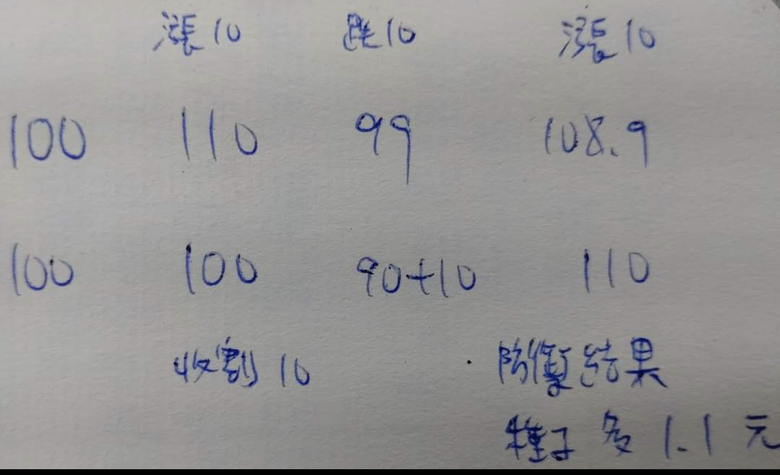 漲10 跌10 漲10
100 110 99 108.9
100 100 90+10 110
收割10 · 結果
種子多1.1元